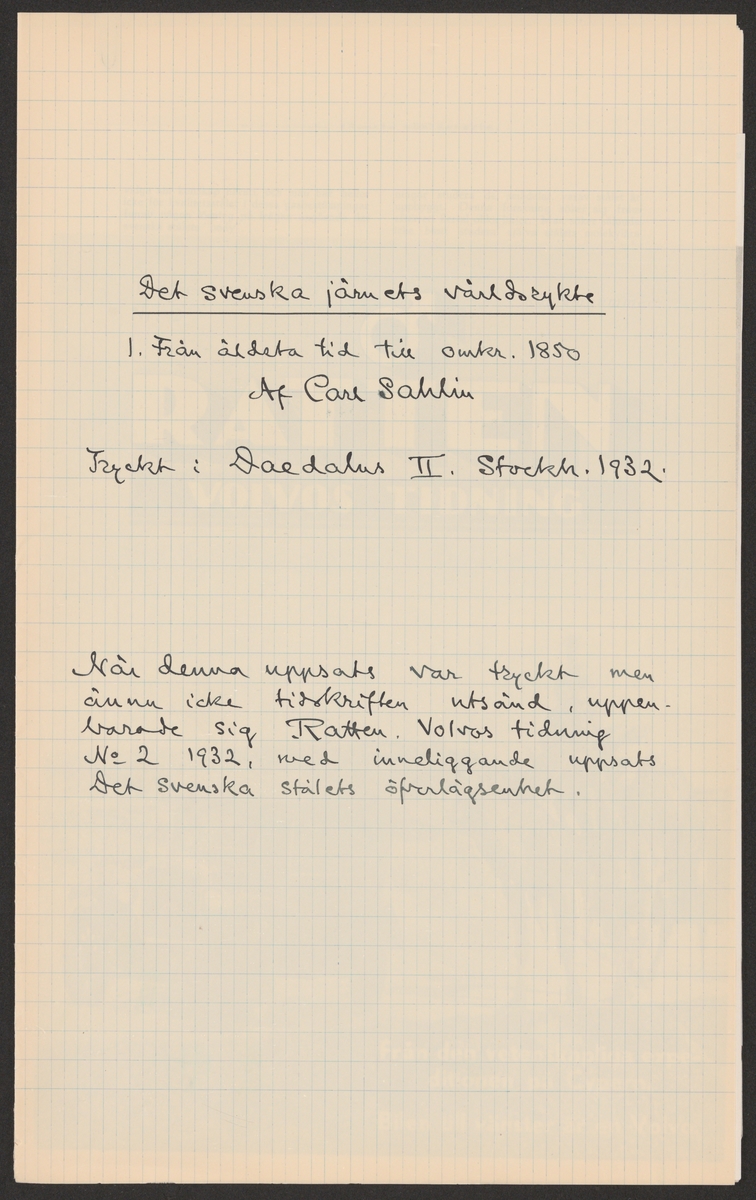 Det svenska järnets världsrykte
1. Från äldsta tid till omkr. 1850
Af Carl Sahlin
Tryckt i Daedalus II. Stockh. 1932.
När denna uppsats var tryckt men
ännu icke tidskriften utsänd, uppen-
barade sig Ratten. Volvos tidning
No 2 1932, med inneliggande uppsats
Det svenska stålets öfverlägsenhet.